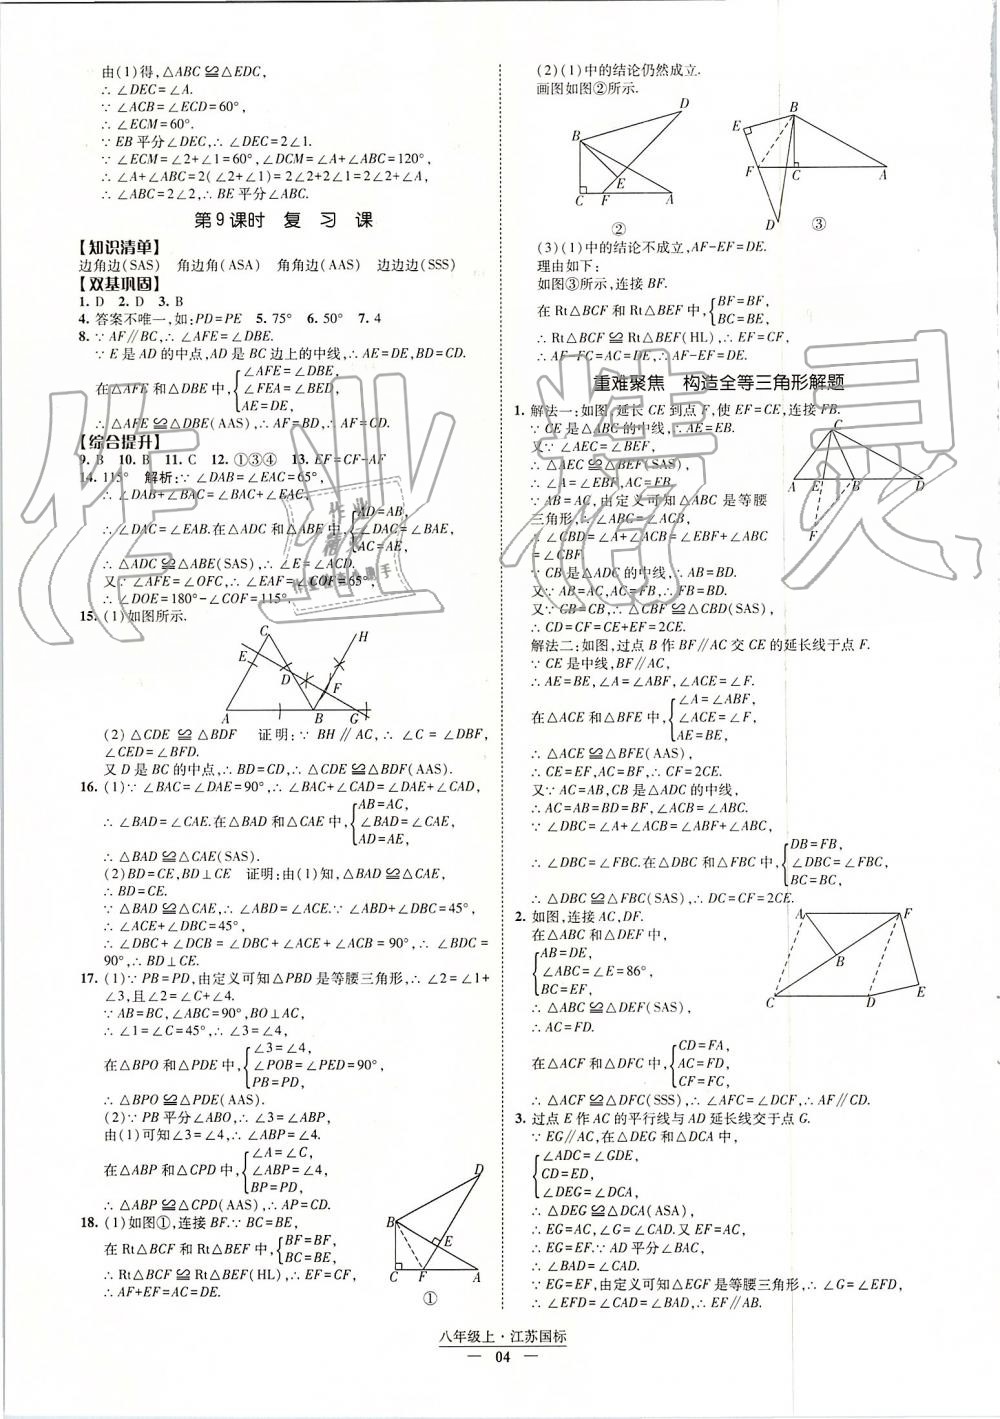 由(1)得,△ABC≌△EDC,
∴∠DEC=∠A.
∵∠ACB=∠ECD=60°,
∴∠ECM=60°.
∵EB平分∠DEC,∴∠DEC=2∠1.
∵∠ECM=∠2+∠1=60°,∠DCM=∠A+∠ABC=120°,
∴∠A+∠ABC=2(∠2+∠1)=2∠2+2∠1=2∠2+∠A,
∴∠ABC=2∠2,∴BE平分∠ABC.
第9课时 复 习 课
【知识清单】
边角边(SAS) 角边角(ASA) 角角边(AAS) 边边边(SSS)
【双基巩固】
1. D 2. D 3. B
4. 答案不唯一,如:PD=PE 5. 75° 6. 50° 7. 4
8. ∵AF∥BC,∴∠AFE=∠DBE.
∵E是AD的中点,AD是BC边上的中线,∴AE=DE,BD=CD.
在△AFE和△DBE中,{∠AFE=∠DBE,
∠FEA=∠BED,
AE=DE,
∴△AFE≌△DBE(AAS),∴AF=BD,∴AF=CD.
【综合提升】
9. B 10. B 11. C 12. ①③④ 13. EF=CF-AF
14. 115° 解析:∵∠DAB=∠EAC=65°,
∴∠DAB+∠BAC=∠BAC+∠EAC,
∴∠DAC=∠EAB.在△ADC和△ABE中,{AD=AB,
∠DAC=∠BAE,
AC=AE,
∴△ADC≌△ABE(SAS),∴∠E=∠ACD.
又∵∠AFE=∠OFC,∴∠EAF=∠COF=65°,
∴∠DOE=180°-∠COF=115°.
15. (1)如图所示.
C
H
E
D
F
A
B
G
(2)△CDE≌△BDF 证明:∵BH∥AC,∴∠C=∠DBF,
∠CED=∠BFD.
又D是BC的中点,∴BD=CD,∴△CDE≌△BDF(AAS).
16. (1)∵∠BAC=∠DAE=90°,∴∠BAC+∠CAD=∠DAE+∠CAD,
∴∠BAD=∠CAE.在△BAD和△CAE中,{AB=AC,
∠BAD=∠CAE,
AD=AE,
∴△BAD≌△CAE(SAS).
(2)BD=CE,BD⊥CE 证明:由(1)知,△BAD≌△CAE,
∴BD=CE.
∵△BAD≌△CAE,∴∠ABD=∠ACE.∵∠ABD+∠DBC=45°,
∴∠ACE+∠DBC=45°,
∴∠DBC+∠DCB=∠DBC+∠ACE+∠ACB=90°,∴∠BDC=
90°,∴BD⊥CE.
17. (1)∵PB=PD,由定义可知△PBD是等腰三角形,∴∠2=∠1+
∠3,且∠2=∠C+∠4.
∵AB=BC,∠ABC=90°,BO⊥AC,
∴∠1=∠C=45°,∴∠3=∠4,
在△BPO和△PDE中,{∠3=∠4,
∠POB=∠PED=90°,
PB=PD,
∴△BPO≌△PDE(AAS).
(2)∵PB平分∠ABO,∴∠3=∠ABP,
由(1)可知∠3=∠4,∴∠ABP=∠4.
在△ABP和△CPD中,{∠A=∠C,
∠ABP=∠4,
BP=PD,
∴△ABP≌△CPD(AAS),∴AP=CD.
18. (1)如图①,连接BF.∵BC=BE,
在Rt△BCF和Rt△BEF中,{BF=BF,
BC=BE,
∴Rt△BCF≌Rt△BEF(HL),∴EF=CF,
∴AF+EF=AC=DE.
D
B
E
C
F
A
①
(2)(1)中的结论仍然成立.
画图如图②所示.
D
B
E
C
F
A
②
B
E
F
C
A
D
③
(3)(1)中的结论不成立,AF-EF=DE.
理由如下:
如图③所示,连接BF.
在Rt△BCF和Rt△BEF中,{BF=BF,
BC=BE,
∴Rt△BCF≌Rt△BEF(HL),∴EF=CF,
∴AF-FC=AC=DE,∴AF-EF=DE.
重难聚焦 构造全等三角形解题
1. 解法一:如图,延长CE到点F,使EF=CE,连接FB.
∵CE是△ABC的中线,∴AE=EB.
又∵∠AEC=∠BEF,
∴△AEC≌△BEF(SAS),
∴∠A=∠EBF,AC=FB.
∵AB=AC,由定义可知△ABC是等腰
三角形,∴∠ABC=∠ACB,
∴∠CBD=∠A+∠ACB=∠EBF+∠ABC
=∠CBF.
∵CB是△ADC的中线,∴AB=BD.
又∵AB=AC,AC=FB,∴FB=BD.
又∵CB=CB,∴△CBF≌△CBD(SAS),
∴CD=CF=CE+EF=2CE.
C
A
E
B
D
F
解法二:如图,过点B作BF∥AC交CE的延长线于点F.
∵CE是中线,BF∥AC,
∴AE=BE,∠A=∠ABF,∠ACE=∠F.
在△ACE和△BFE中,{∠A=∠ABF,
∠ACE=∠F,
AE=BE,
∴△ACE≌△BFE(AAS),
∴CE=EF,AC=BF,∴CF=2CE.
又∵AC=AB,CB是△ADC的中线,
∴AC=AB=BD=BF,∠ACB=∠ABC.
∵∠DBC=∠A+∠ACB=∠ABF+∠ABC,
∴∠DBC=∠FBC.在△DBC和△FBC中,{DB=FB,
∠DBC=∠FBC,
BC=BC,
∴△DBC≌△FBC(SAS),∴DC=CF=2CE.
2. 如图,连接AC,DF.
在△ABC和△DEF中,
{AB=DE,
∠ABC=∠E=86°,
BC=EF,
∴△ABC≌△DEF(SAS),
∴AC=FD.
在△ACF和△DFC中,{CD=FA,
AC=FD,
CF=FC,
∴△ACF≌△DFC(SSS),∴∠AFC=∠DCF,∴AF∥CD.
A
F
B
C
D
E
3. 过点E作AC的平行线与AD延长线交于点G.
∵EG∥AC,在△DEG和△DCA中,
{∠ADC=∠GDE,
CD=ED,
∠DEG=∠DCA,
∴△DEG≌△DCA(ASA),
∴EG=AC,∠G=∠CAD.又EF=AC,
∴EG=EF.∵AD平分∠BAC,
∴∠BAD=∠CAD.
∵EG=EF,由定义可知△EGF是等腰三角形,∴∠G=∠EFD,
∴∠EFD=∠CAD=∠BAD,∴EF∥AB.
八年级上·江苏国标
04